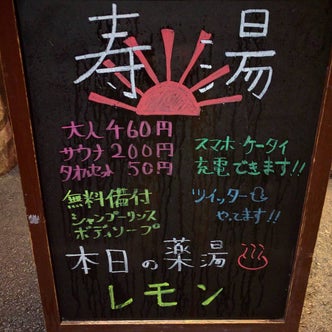 寿湯
大人 460円
サウナ 200円
タオルセット 50円
スマホ・ケータイ
充電できます!!
無料備付
シャンプーリンス
ボディソープ
ツイッターも
やってます!!
本日の薬湯♨
レモン